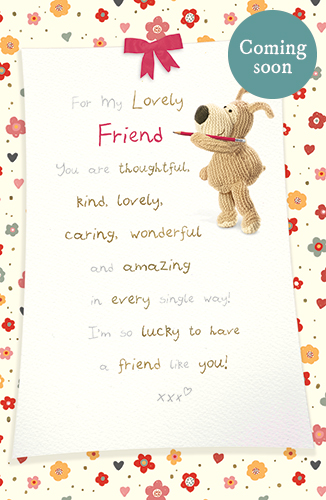 Coming
soon
For My Lovely
Friend
You are thoughtful,
kind, lovely,
caring, wonderful
and amazing
in every single way!
I'm so lucky to have
a friend like you!
xxx♡